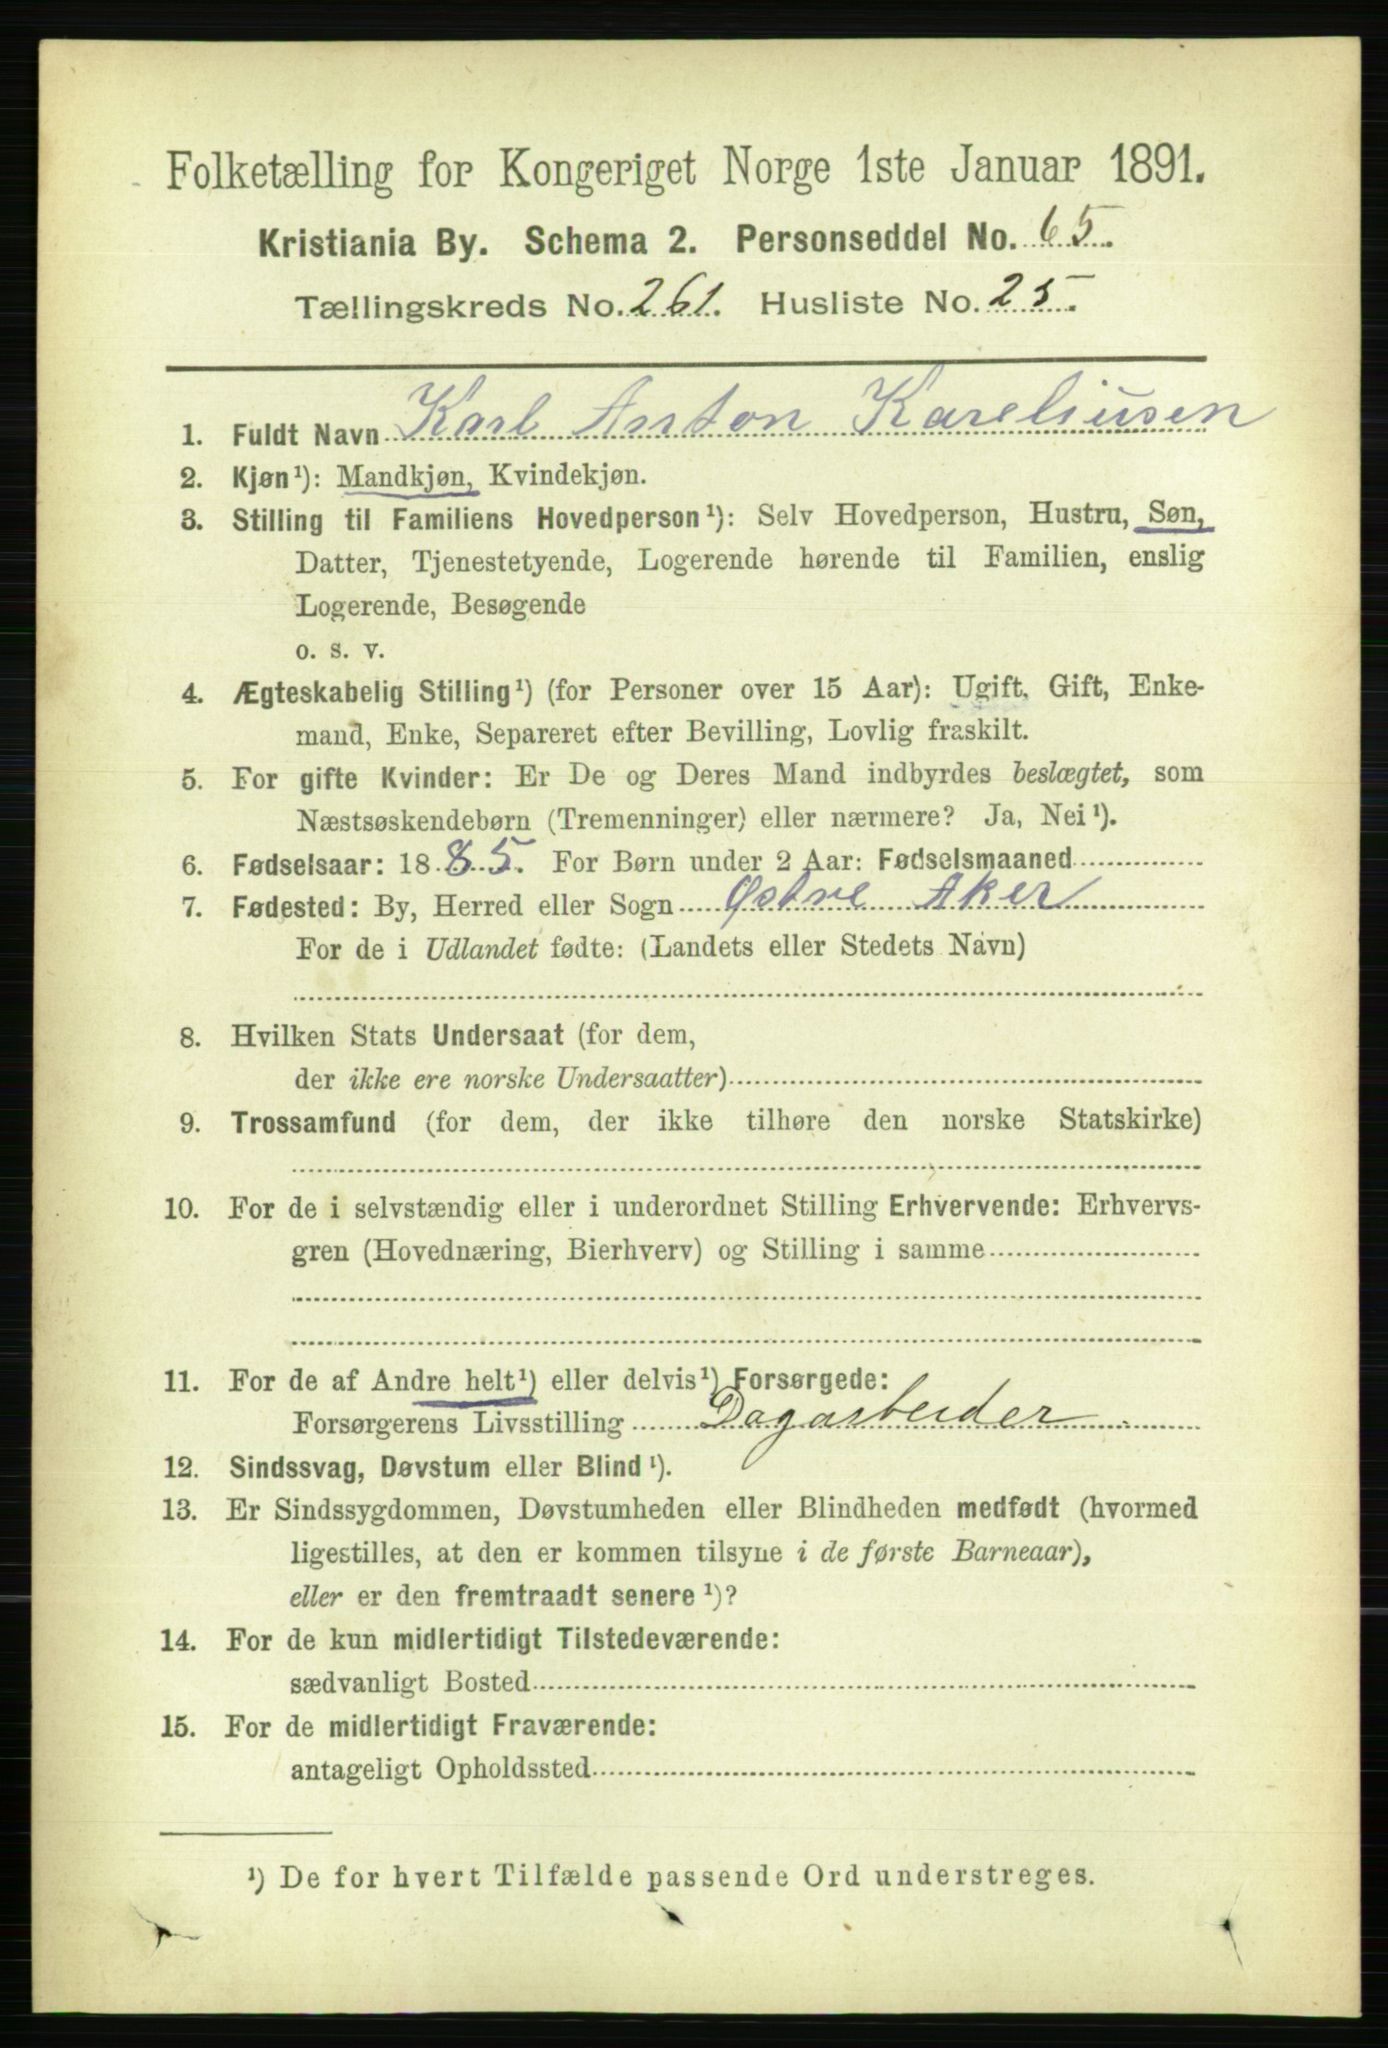 Folketælling for Kongeriget Norge 1ste Januar 1891.
Kristiania By. Schema 2. Personseddel No. 65.
Tællingskreds No. 261. Husliste No. 25.
1. Fuldt Navn Karl Anton Kareliusen
2. Kjøn¹): Mandkjøn, Kvindekjøn.
3. Stilling til Familiens Hovedperson¹): Selv Hovedperson, Hustru, Søn,
Datter, Tjenestetyende, Logerende hørende til Familien, enslig
Logerende, Besøgende
o. s. v.
4. Ægteskabelig Stilling¹) (for Personer over 15 Aar): Ugift, Gift, Enke-
mand, Enke, Separeret efter Bevilling, Lovlig fraskilt.
5. For gifte Kvinder: Er De og Deres Mand indbyrdes beslægtet, som
Næstsøskendebørn (Tremenninger) eller nærmere? Ja, Nei¹).
6. Fødselsaar: 1885. For Børn under 2 Aar: Fødselsmaaned
7. Fødested: By, Herred eller Sogn Østre Aker
For de i Udlandet fødte: (Landets eller Stedets Navn)
8. Hvilken Stats Undersaat (for dem,
der ikke ere norske Undersaatter)
9. Trossamfund (for dem, der ikke tilhøre den norske Statskirke)
10. For de i selvstændig eller i underordnet Stilling Erhvervende: Erhvervs-
gren (Hovednæring, Bierhverv) og Stilling i samme
11. For de af Andre helt¹) eller delvis¹) Forsørgede:
Forsørgerens Livsstilling Dagarbeider
12. Sindssvag, Døvstum eller Blind¹).
13. Er Sindssygdommen, Døvstumheden eller Blindheden medfødt (hvormed
ligestilles, at den er kommen tilsyne i de første Barneaar),
eller er den fremtraadt senere¹)?
14. For de kun midlertidigt Tilstedeværende:
sædvanligt Bosted
15. For de midlertidigt Fraværende:
antageligt Opholdssted
¹) De for hvert Tilfælde passende Ord understreges.